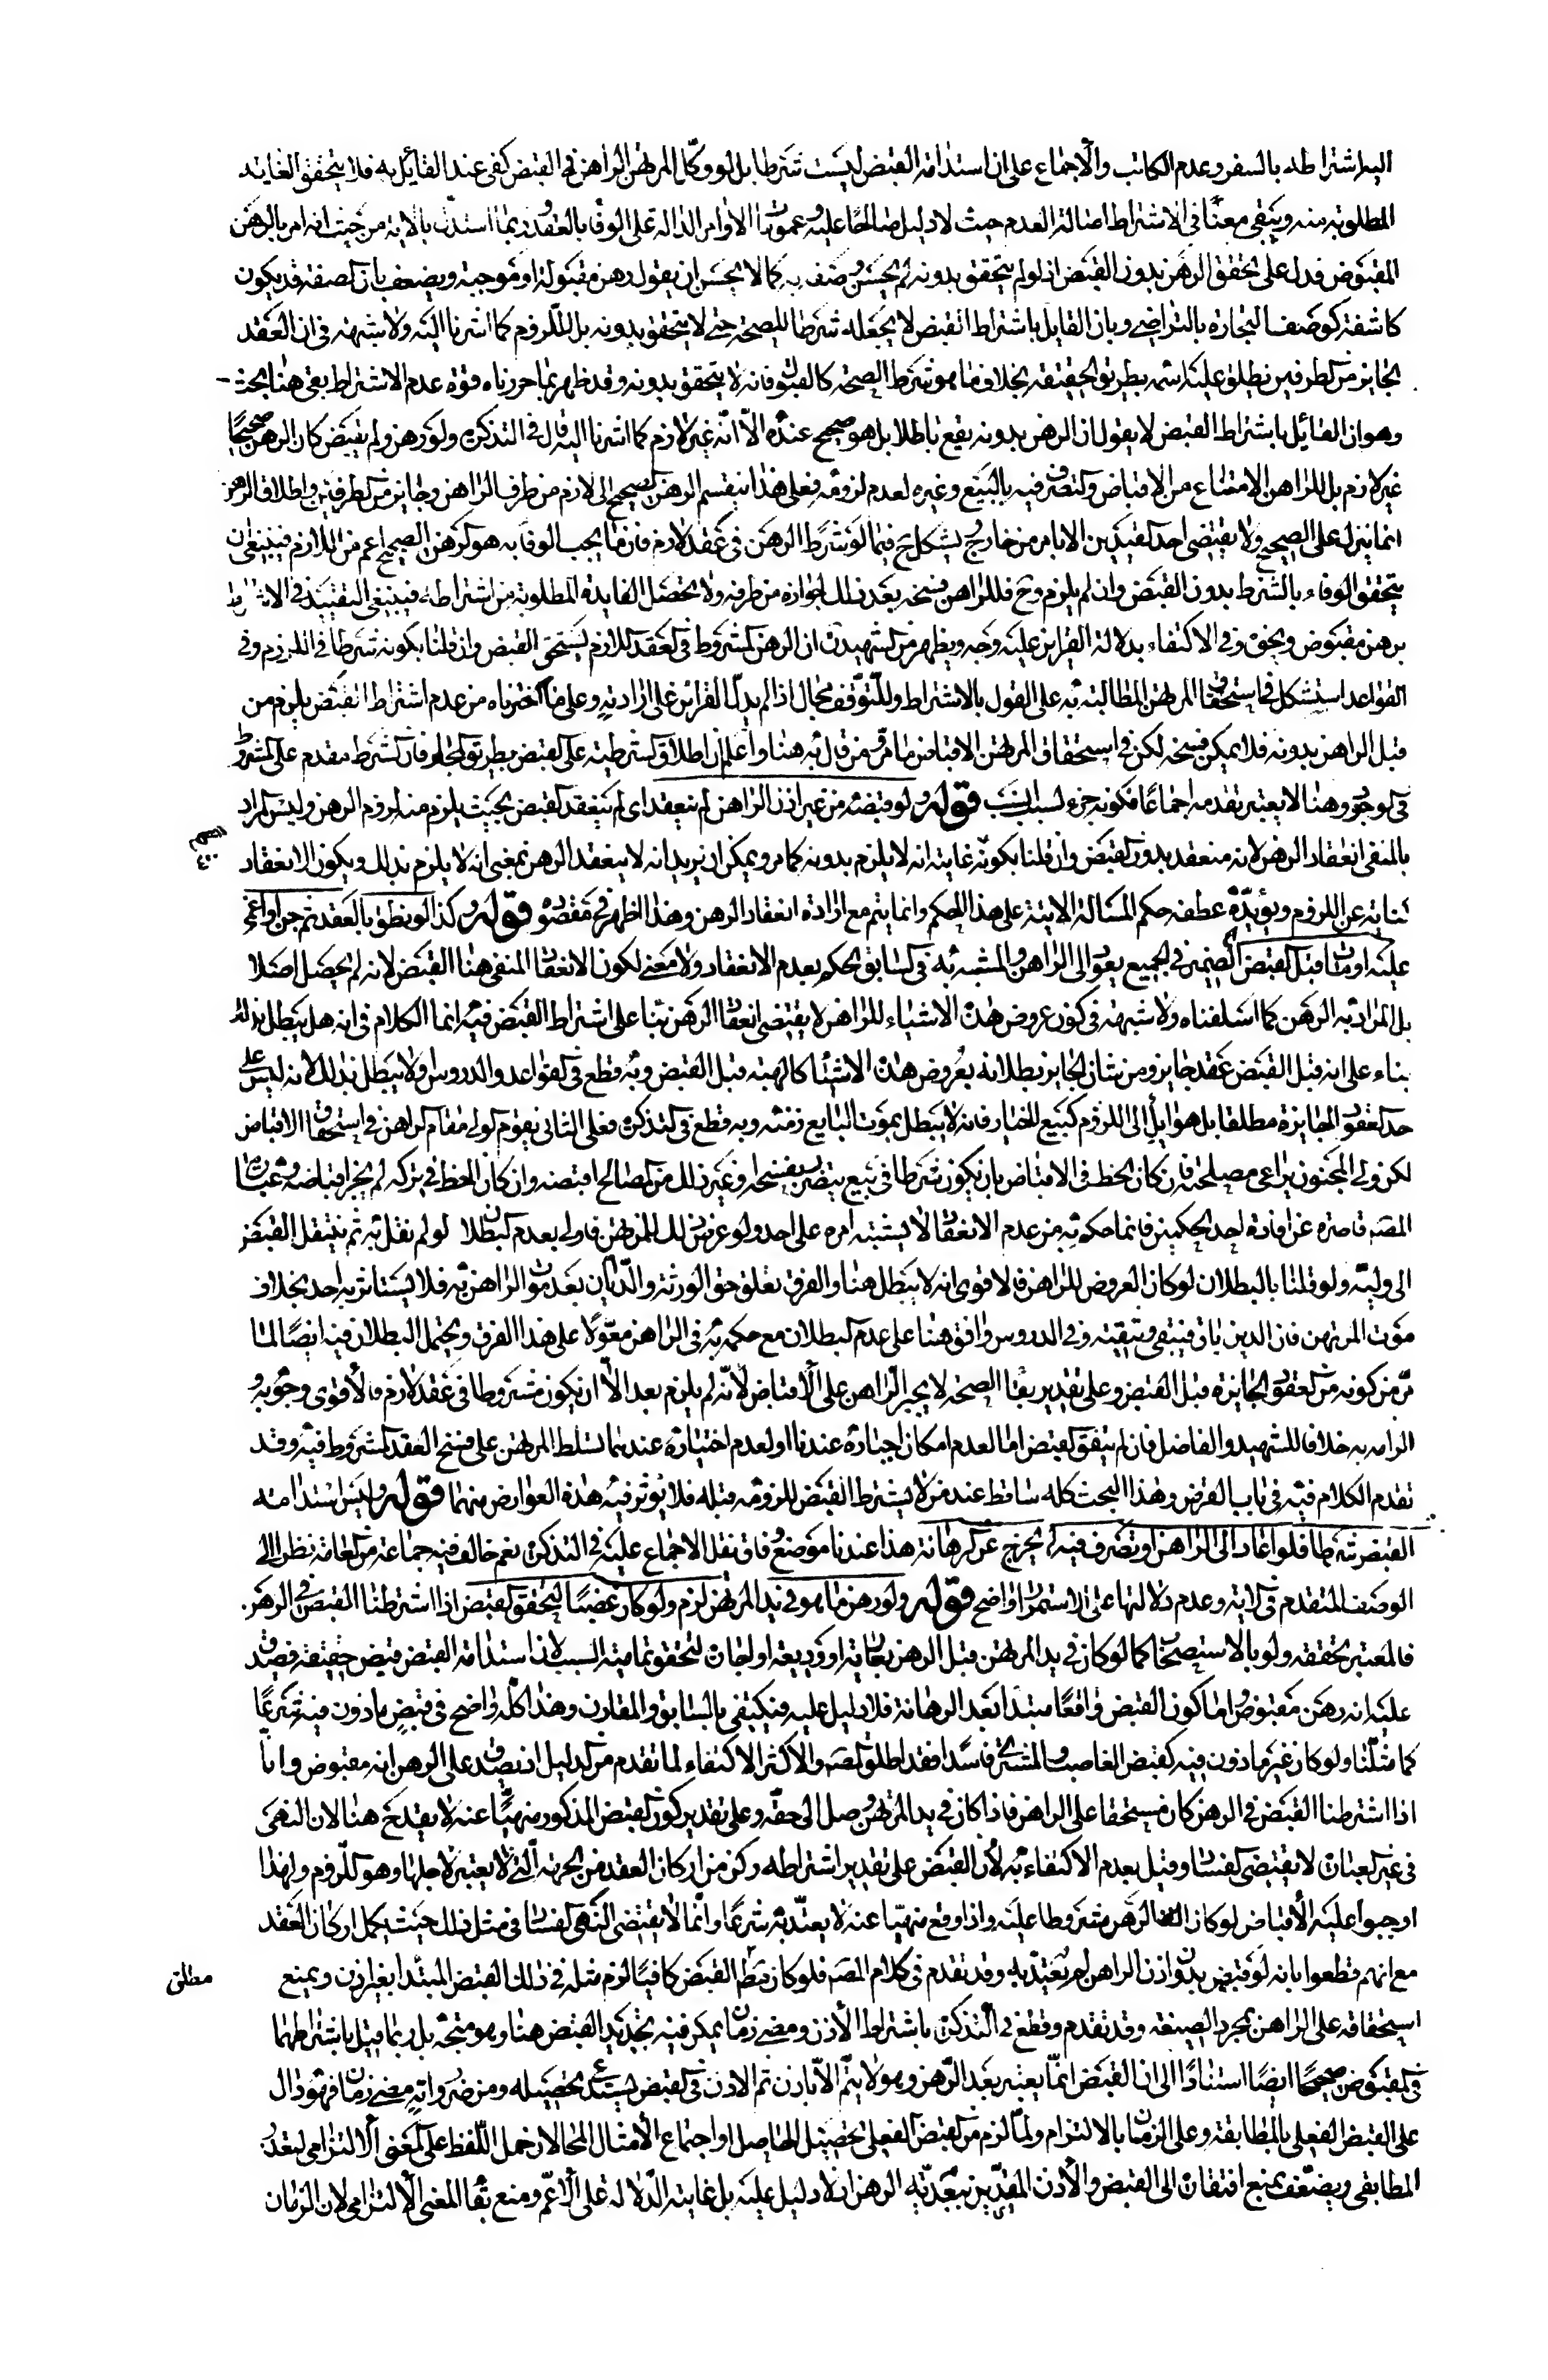 اليه اشتراطه بالسفر وعدم الكاتب والاجماع على ان استدامة القبض ليست شرطا بل لو وكّل المرتهن الراهن في القبض كفى عند القائل به فلا يتحقق الفائدة
المطلوبة منه ويبقى معنا في الاشتراط اصالة العدم حيث لا دليل صالحا عليه وعمومات الاوامر الدالة على الوفا بالعقود وربما استدل بالاية من حيث انه امر بالرهن
المقبوض فدل على تحقق الرهن بدون القبض اذ لو لم يتحقق بدونه لم يحسن وصفه به كما لا يحسن ان يقول رهن مقبولة او موجبة ويضعف بان الصفة قد يكون
كاشفة كوصف التجارة بالتراضي وبان القايل باشتراط القبض لا يجعله شرطا للصحة حتى لا يتحقق بدونه بل للزوم كما اشرنا اليه ولا شبهة في ان العقد
الجايز من الطرفين يطلق عليه اسمه بطريق الحقيقة بخلاف ما هو شرط الصحة كالقبول فانه لا يتحقق بدونه وقد ظهر بما حررناه قوة عدم الاشتراط بقي هنا بحث
وهو ان القائل باشتراط القبض لا يقول ان الرهن بدونه يقع باطلا بل هو صحيح عنده الا انه غير لازم كما اشرنا اليه قال في التذكرة ولو رهن ولم يقبض كان الرهن صحيحا
غير لازم بل للراهن الامتناع من الاقباض والتصرف فيه بالبيع وغيره لعدم لزومه فعلى هذا ينقسم الرهن الصحيح الى لازم من طرف الراهن وجايز من الطرفين واطلاق الرهن
انما ينزل على الصحيح ولا يقتضي احد القيدين الا بامر من خارج يشكل ح فيما لو شرط الرهن في عقد لازم فان ما يجب الوفا به هو الرهن الصحيح اعم من اللازم فينبغي ان
يتحقق الوفاء بالشرط بدون القبض وان لم يلزم وح فللراهن فسخه بعد ذلك لجوازه من طرفه ولا تحصل الفايدة المطلوبة من اشتراطه فينبغي التقييد في الاشتراط
برهن مقبوض ونحوه وفي الاكتفاء بدلالة القراين عليه وجه ويظهر من الشهيدة ان الرهن المشروط في العقد اللازم يستحق القبض وان قلنا بكونه شرطا في اللزوم وفي
القواعد استشكل في استحقاق المرتهن المطالبة به على القول بالاشتراط وللتوقف مجال اذا لم يدل القراين على ارادته وعلى ما اخترناه من عدم اشتراط القبض يلزم من
قبل الراهن بدونه فلا يمكن فسخه لكن في استحقاق المرتهن الاقباض ما مر من قال به هنا واعلم ان اطلاق الشرطية على القبض بطريق المجاز فان الشرط مقدم على المشروط
في الوجود وهنا لا يعتبر تقدمه اجماعا فكونه جزء السبب انسب قوله ولو قبضه من غير اذن الراهن لم ينعقد اي لم ينعقد القبض بحيث يلزم منه لزوم الرهن وليس المراد
بالمنفي انعقاد الرهن لانه منعقد بدون القبض وان قلنا بكونه غايته انه لا يلزم بدونه كما مر ويمكن ان يريد انه لا ينعقد الرهن بمعنى انه لا يلزم بذلك ويكون الانعقاد
كناية عن اللزوم ويؤيده عطفه حكم المسالة الاتية على هذا الحكم وانما يتم مع ارادة انعقاد الرهن وهذا اظهر في مقصوده قوله وكذا لو نطق بالعقد ثم جن او اغمي
عليه او مات قبل القبض الضمير في الجميع يعود الى الراهن والمشبه به في السابق الحكم بعدم الانعقاد ولا معنى لكون الانعقاد المنفي هنا القبض لانه لم يحصل اصلا
بل المراد به الرهن كما اسلفناه ولا شبهة في كون عروض هذه الاشياء للراهن لا يقتضي انعقاد الرهن بناء على اشتراط القبض فيه انما الكلام في انه هل يبطل بذلك
بناء على انه قبل القبض عقد جايز ومن شان الجايز بطلانه بعروض هذه الاشياء كالهبة قبل القبض وبه قطع في القواعد والدروس او لا يبطل بذلك لانه ليس على
حد العقود الجايزة مطلقا بل هو ايل الى اللزوم كبيع الخيار فانه لا يبطل بموت البايع زمنه وبه قطع في التذكرة فعلى الثاني يقوم الولي مقام الراهن في استحقاق الاقباض
لكن ولي المجنون يراعي مصلحته فان كان الحظ في الاقباض بان يكون شرطا في بيع يتضرر بفسخه او غير ذلك من المصالح اقبضه وان كان الحظ في تركه لم يجز اقباضه وعبارة
المصَ قاصرة عن افادة احد الحكمين فانما حكم به من عدم الانعقاد لا يشتبه امره على احد ولو عرض ذلك للمرتهن فاولى بعدم البطلان لو لم نقل به ثم ينتقل القبض
الى وليه ولو قلنا بالبطلان لو كان العروض للراهن فالاقوى انه لا يبطل هنا والفرق تعلق حق الورثة والديان بعد موت الراهن به فلا يستاثر به احد بخلاف
موت المرتهن فان الدين باق فتبقى وثيقته وفي الدروس وافق هنا على عدم البطلان مع حكمه به في الراهن معولا على هذا الفرق ويحتمل البطلان فيه ايضا لما
مر من كونه من العقود الجايزة قبل القبض وعلى تقدير بقاء الصحة لا يجبر الراهن على الاقباض لانه لم يلزم بعد الا ان يكون مشروطا في عقد لازم فالاقوى وجوبه و
الزامه به خلافا للشهيد والفاضل فان لم يتفق القبض اما لعدم امكان اجباره عندنا او لعدم اختياره عندهما تسلط المرتهن على فسخ العقد المشروط فيه وقد
تقدم الكلام فيه في باب القرض وهذا البحث كله ساقط عند من لا يشترط القبض للزومه قبله فلا يؤثر فيه هذه العوارض منهما قوله وليس استدامة
القبض شرطا فلو عاد الى الراهن او تصرف فيه لم يخرج عن الرهانة هذا عندنا موضع وفاق نقل الاجماع عليه في التذكرة نعم خالف فيه جماعة من العامة نظرا الى
الوصف المتقدم في الاية وعدم دلالتها على الاستمرار واضح قوله ولو رهن ما هو في يد المرتهن لزم ولو كان غصبا لتحقق القبض اذا اشترطنا القبض في الرهن
فالمعتبر تحققه ولو بالاستصحاب كما لو كان في يد المرتهن قبل الرهن بعارية او وديعة او اجارة لتحقق تمامية السبب لان استدامة القبض قبض حقيقة فيصدق
عليه انه رهن مقبوض واما كون القبض واقعا مبتدا بعد الرهانة فلا دليل عليه فيكتفى بالسابق والمقارن وهذا كله واضح في قبض ماذون فيه شرعا
كما مثلنا ولو كان غير ماذون فيه كقبض الغاصب والمشتري فاسدا فقد اطلق المصَ والاكثر الاكتفاء لما تقدم من الدليل اذ يصدق على الرهن انه مقبوض وانا
اذا اشترطنا القبض في الرهن كان مستحقا على الراهن فاذا كان في يد المرتهن وصل الى حقه وعلى تقدير كون القبض المذكور منهيا عنه لا يقدح هنا لان النهي
في غير العبادات لا يقتضي الفساد وقيل بعدم الاكتفاء به لان القبض على تقدير اشتراطه ركن من اركان العقد من الجهة التي لا يعتبر لاجلها وهو اللزوم ولهذا
اوجبوا عليه الاقباض لو كان الرهن مشروطا عليه واذا وقع منهيا عنه لا يعتد به شرعا وانما لا يقتضي النهي الفساد في مثل ذلك حيث يكمل اركان العقد
مع انهم قطعوا بانه لو قبض بدون اذن الراهن لم يعتد به وقد تقدم في كلام المصَ فلو كان مطلق القبض كافيا لزم مثله في ذلك القبض المبتدا بغير اذن ويمنع
استحقاقه على الراهن بمجرد الصيغة وقد تقدم وقطع في التذكرة باشتراط الاذن ومضي زمان يمكن فيه تجديد القبض هنا وهو متجه بل ربما قيل باشتراطهما
في المقبوض صحيحا ايضا استنادا الى ان القبض انما يعتبر بعد الرهن وهو لا يتم الا باذن ثم الاذن في القبض يستدعي تحصيله ومن ضروراته مضي زمان فهو دال
على القبض الفعلي بالمطابقة وعلى الزمان بالالتزام ولما لزم من القبض الفعلي تحصيل الحاصل او اجتماع الامثال المحال حمل اللفظ على المعنى الالتزامي لتعذر
المطابقي ويضعف بمنع افتقاره الى القبض والاذن المقيدين ببعدية الرهن اذ لا دليل عليه بل غايته الدلالة على الاعم ومنع بقاء المعنى الالتزامي لان الزمان